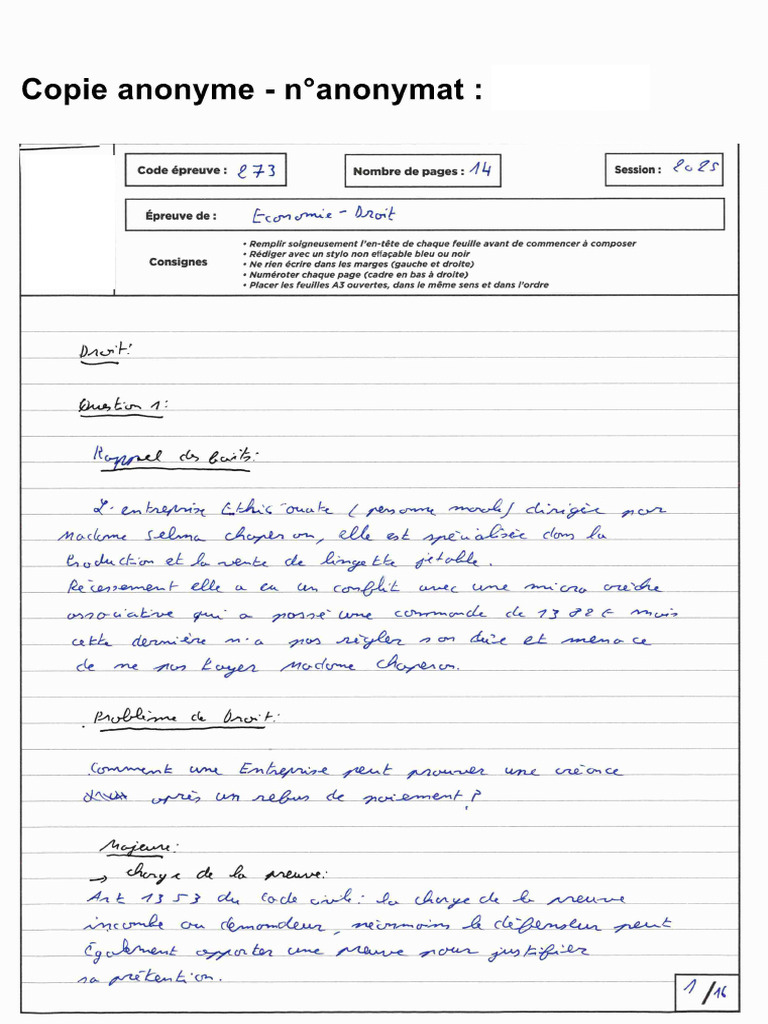 Copie anonyme - n°anonymat :
Code épreuve : 273
Nombre de pages : 14
Session : 2025
Épreuve de : Economie - Droit
Consignes
• Remplir soigneusement l'en-tête de chaque feuille avant de commencer à composer
• Rédiger avec un stylo non effaçable bleu ou noir
• Ne rien écrire dans les marges (gauche et droite)
• Numéroter chaque page (cadre en bas à droite)
• Placer les feuilles A3 ouvertes, dans le même sens et dans l'ordre
Droit:
Question 1:
Rappel des faits:
L'entreprise Ethic'ouate (personne morale) dirigée par
Madame Selma chaperon, elle est spécialisée dans la
Production et la vente de lingette jetable.
Récessement elle a eu un conflit avec une micro crèche
associative qui a passé une commande de 1382€ mais
cette dernière n'a pas régler son dûe et menace
de ne pas payer Madame Chaperon.
Problème de Droit:
Comment une Entreprise peut prouver une créance
après un refus de paiement?
Majeure:
→ charge de la preuve:
Art 1353 du code civile: la charge de la preuve
incombe au demandeur, néanmoins le défenseur peut
également apporter une preuve pour justifier
sa prétention.
1/16